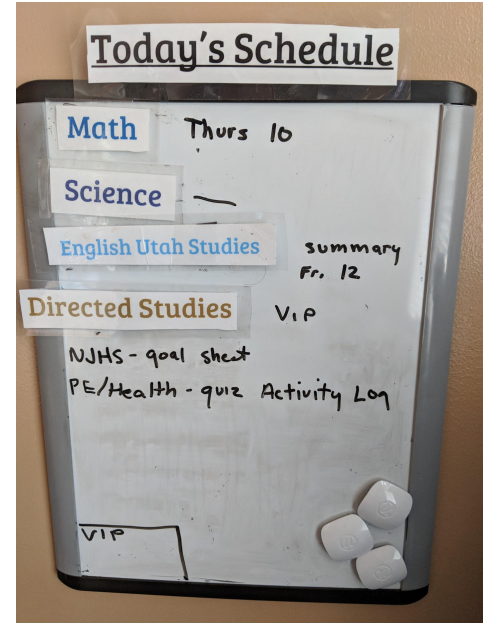 Today's Schedule
Math Thurs 10
Science —
English Utah Studies summary
Fr. 12
Directed Studies V.I.P
NJHS - goal sheet
PE/Health - quiz Activity Log
VIP